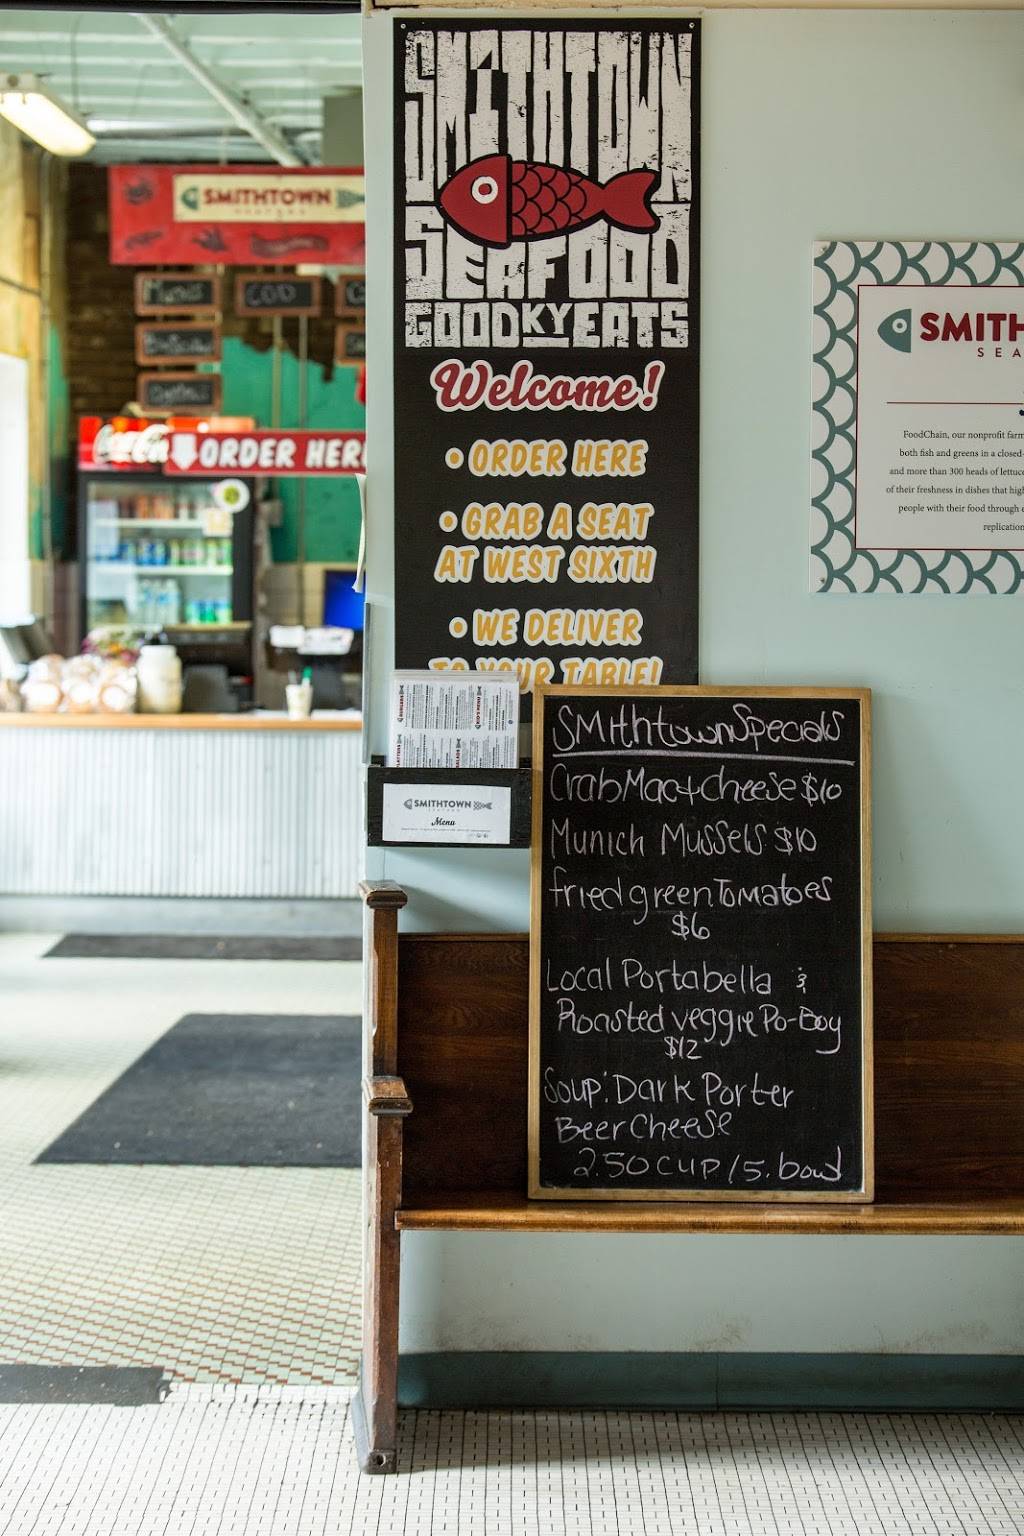 SMITHTOWN
SEAFOOD
GOOD KY EATS
Welcome!
• ORDER HERE
• GRAB A SEAT
AT WEST SIXTH
• WE DELIVER
TO YOUR TABLE!
SMITHTOWN
SEAFOOD
COD
Coca-Cola
ORDER HERE
BURGERS
KID'S MENU
PLATTERS
SALADS
SMITHTOWN
SEAFOOD
Menu
SMithtown Specials
Crab Mac & Cheese $10
Munich Mussels $10
fried green Tomatoes
$6
Local Portabella &
Roasted veggie Po-Boy
$12
Soup: Dark Porter
Beer Cheese
2.50 cup / 5. bowl
SMITH
SEA
FoodChain, our nonprofit farm
both fish and greens in a closed-
and more than 300 heads of lettuce
of their freshness in dishes that high
people with their food through e
replication